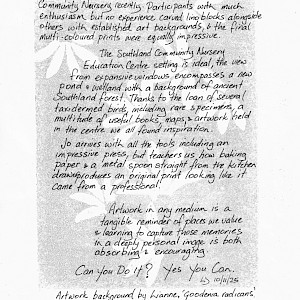 Community Nursery recently. Participants with much
enthusiasm but no experience carved lino blocks alongside
others with established art backgrounds & the final
multi-coloured prints were equally impressive.
The Southland Community Nursery
Education Centre setting is ideal, the view
from expansive windows encompasses a new
pond & wetland with a background of ancient
Southland forest. Thanks to the loan of several
taxidermied birds, including rare specimens, a
multitude of useful books, maps, & artwork field
in the centre we all found inspiration.
Jo arrives with all the tools including an
impressive press, but teachers us how baking
paper & a metal spoon straight from the kitchen
drawer produces an original print looking like it
came from a professional.
Artwork in any medium is a
tangible reminder of places we value
& learning to capture those memories
in a deeply personal image is both
absorbing & encouraging.
Can you Do it? Yes You Can.
10/11/25
Artwork background by Lianne, 'Goodenia radicans'